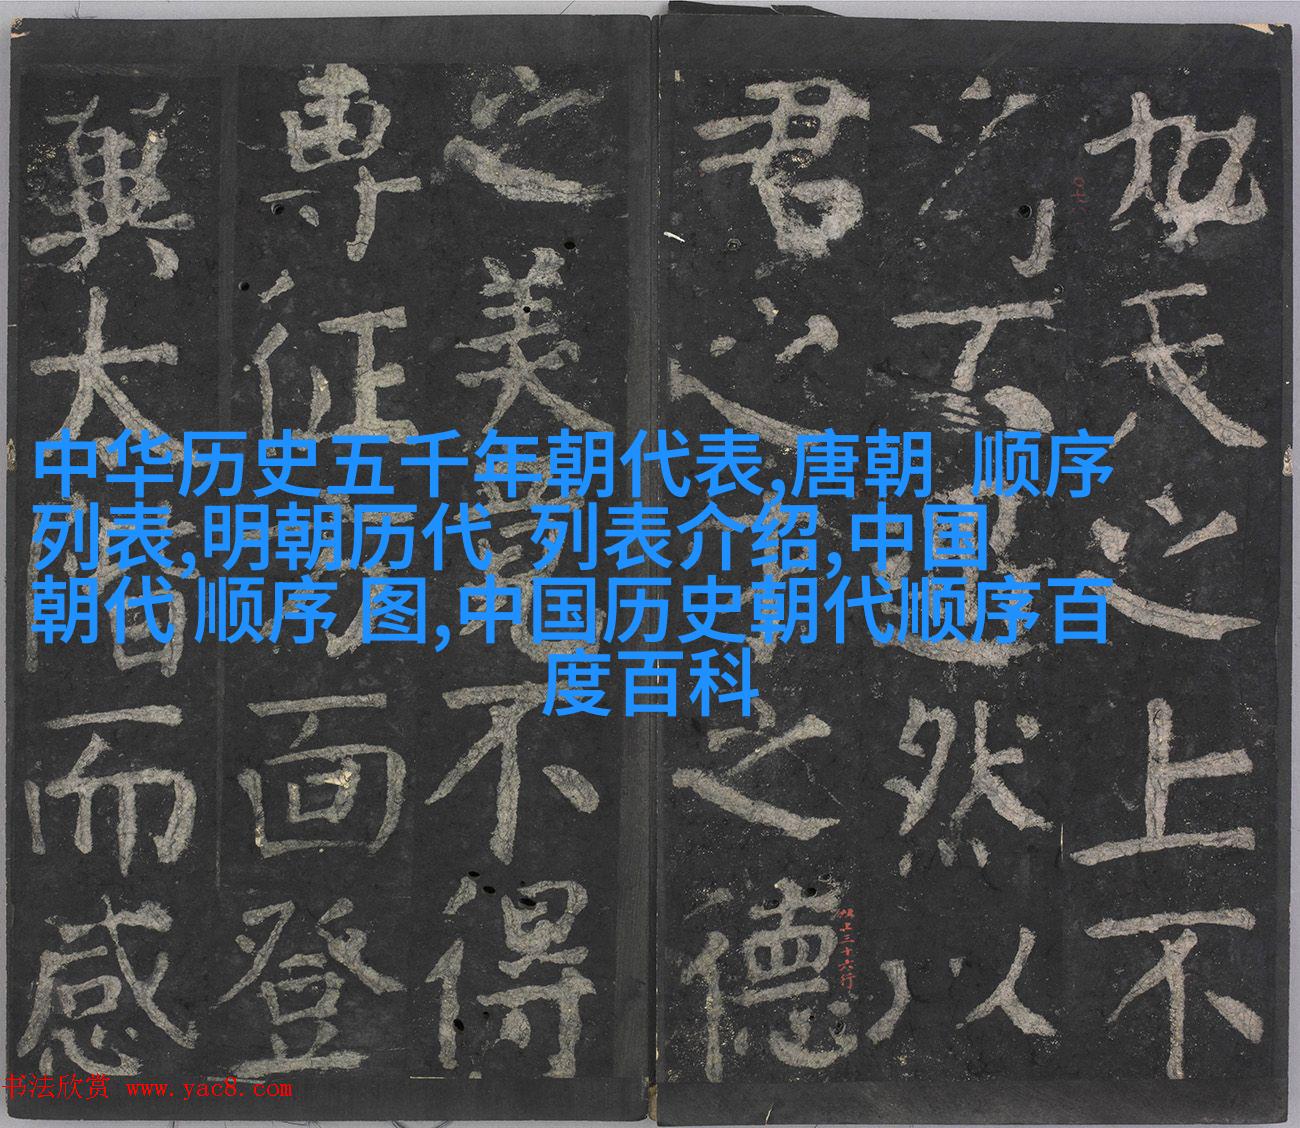 中华历史五千年朝代表,唐朝 顺序
列表,明朝历代 列表介绍,中国
朝代 顺序 图,中国历史朝代顺序百
度百科
加天之上不
不然以
君之之德
之美不得
專征面登
而感
上三十六行
书法欣赏 www.yac8.com